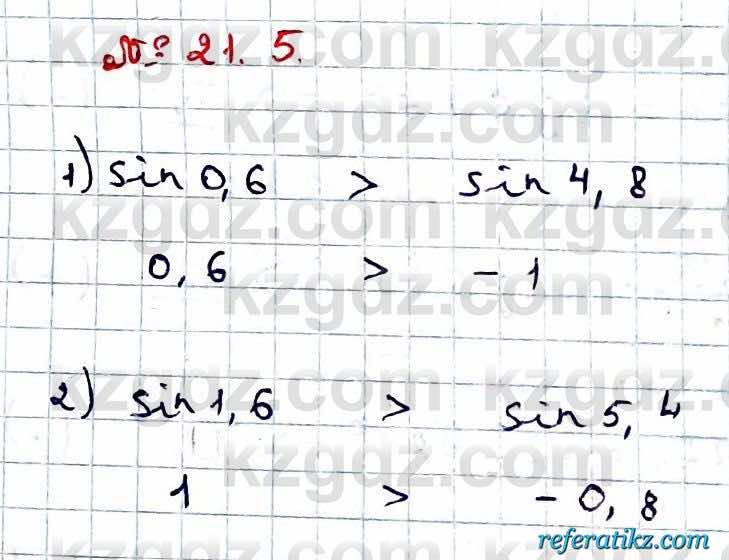 № 21. 5.
1) sin 0,6 > sin 4,8
0,6 > - 1
2) sin 1,6 > sin 5,4
1 > - 0,8
kzgdz.com
referatikz.com